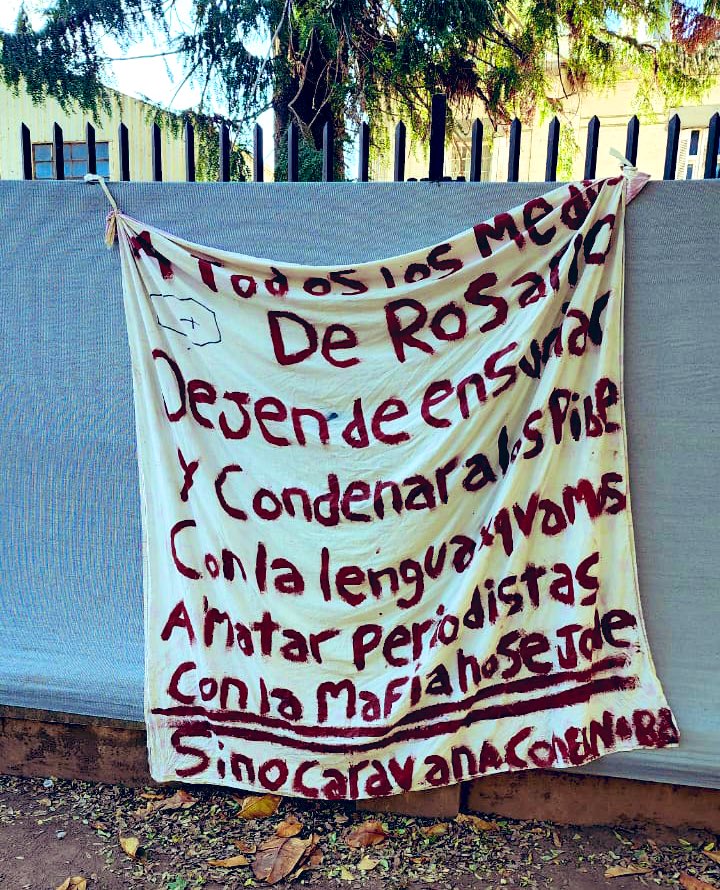 A Todos los Medi
De RoSario
DeJen de ensuciar
Y Condenar a los PiBe
Con la lengua x q vamos
A Matar Periodistas
Con la Mafia no se Jode
Sino caravana Con